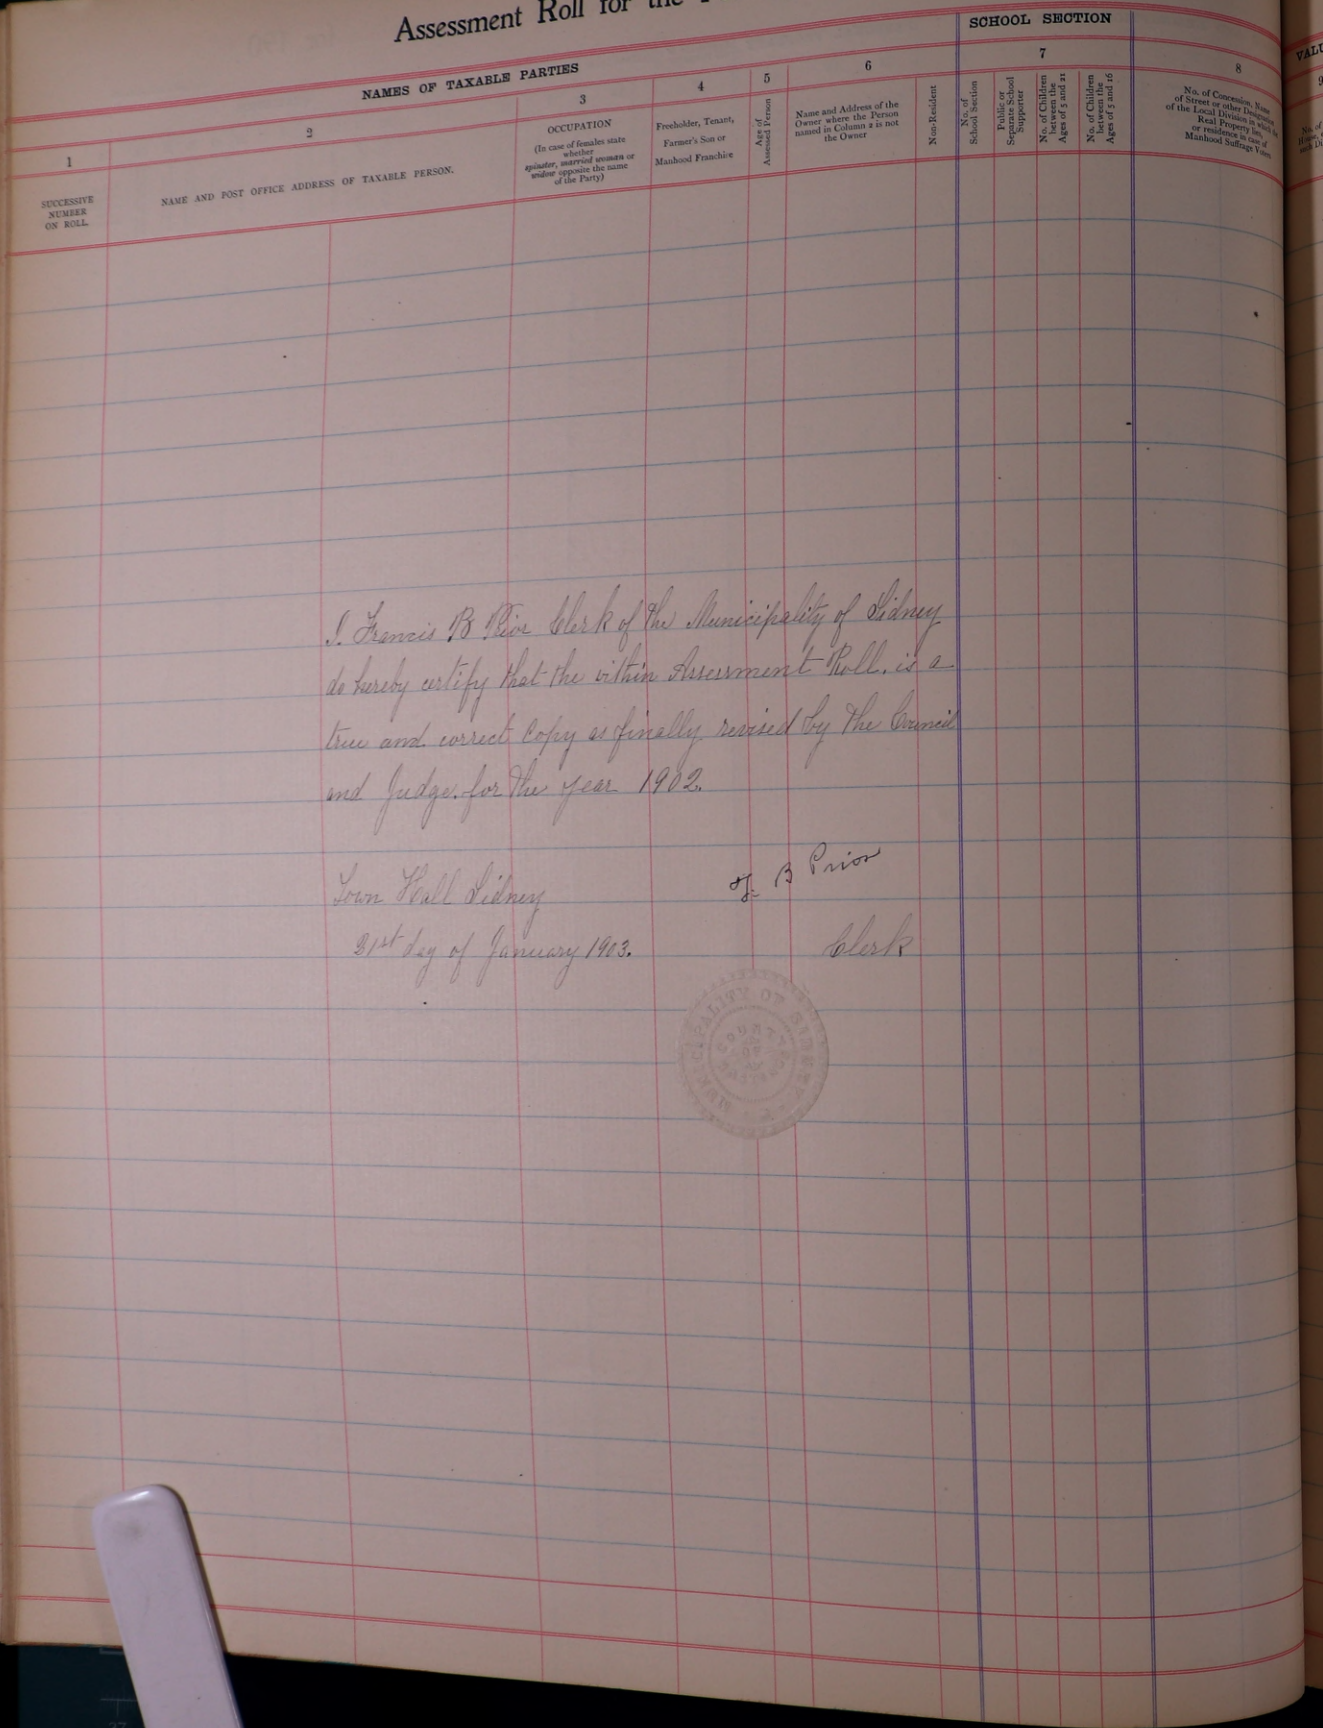 Assessment Roll for the
SCHOOL SECTION
NAMES OF TAXABLE PARTIES
1
SUCCESSIVE
NUMBER
ON ROLL.
2
NAME AND POST OFFICE ADDRESS OF TAXABLE PERSON.
3
OCCUPATION
(In case of females state
whether
spinster, married woman or
widow opposite the name
of the Party)
4
Freeholder, Tenant,
Farmer's Son or
Manhood Franchise
5
Age of
Assessed Person
6
Name and Address of the
Owner where the Person
named in Column 2 is not
the Owner
Non-Resident
7
No. of
School Section
Public or
Separate School
Supporter
No. of Children
between the
Ages of 5 and 21
No. of Children
between the
Ages of 5 and 16
8
No. of Concession, Name
of Street or other Designation
of the Local Division in which the
Real Property lies,
or residence in case of
Manhood Suffrage Voters
VALU
9
I. Francis B Prior Clerk of the Municipality of Sidney
do hereby certify that the within Assessment Roll. is a
true and correct Copy as finally revised by the Council
and Judge. for the year 1902.
F. B Prior
Town Hall Sidney
21st day of January 1903.
Clerk
MUNICIPALITY OF SIDNEY
COUNTY OF